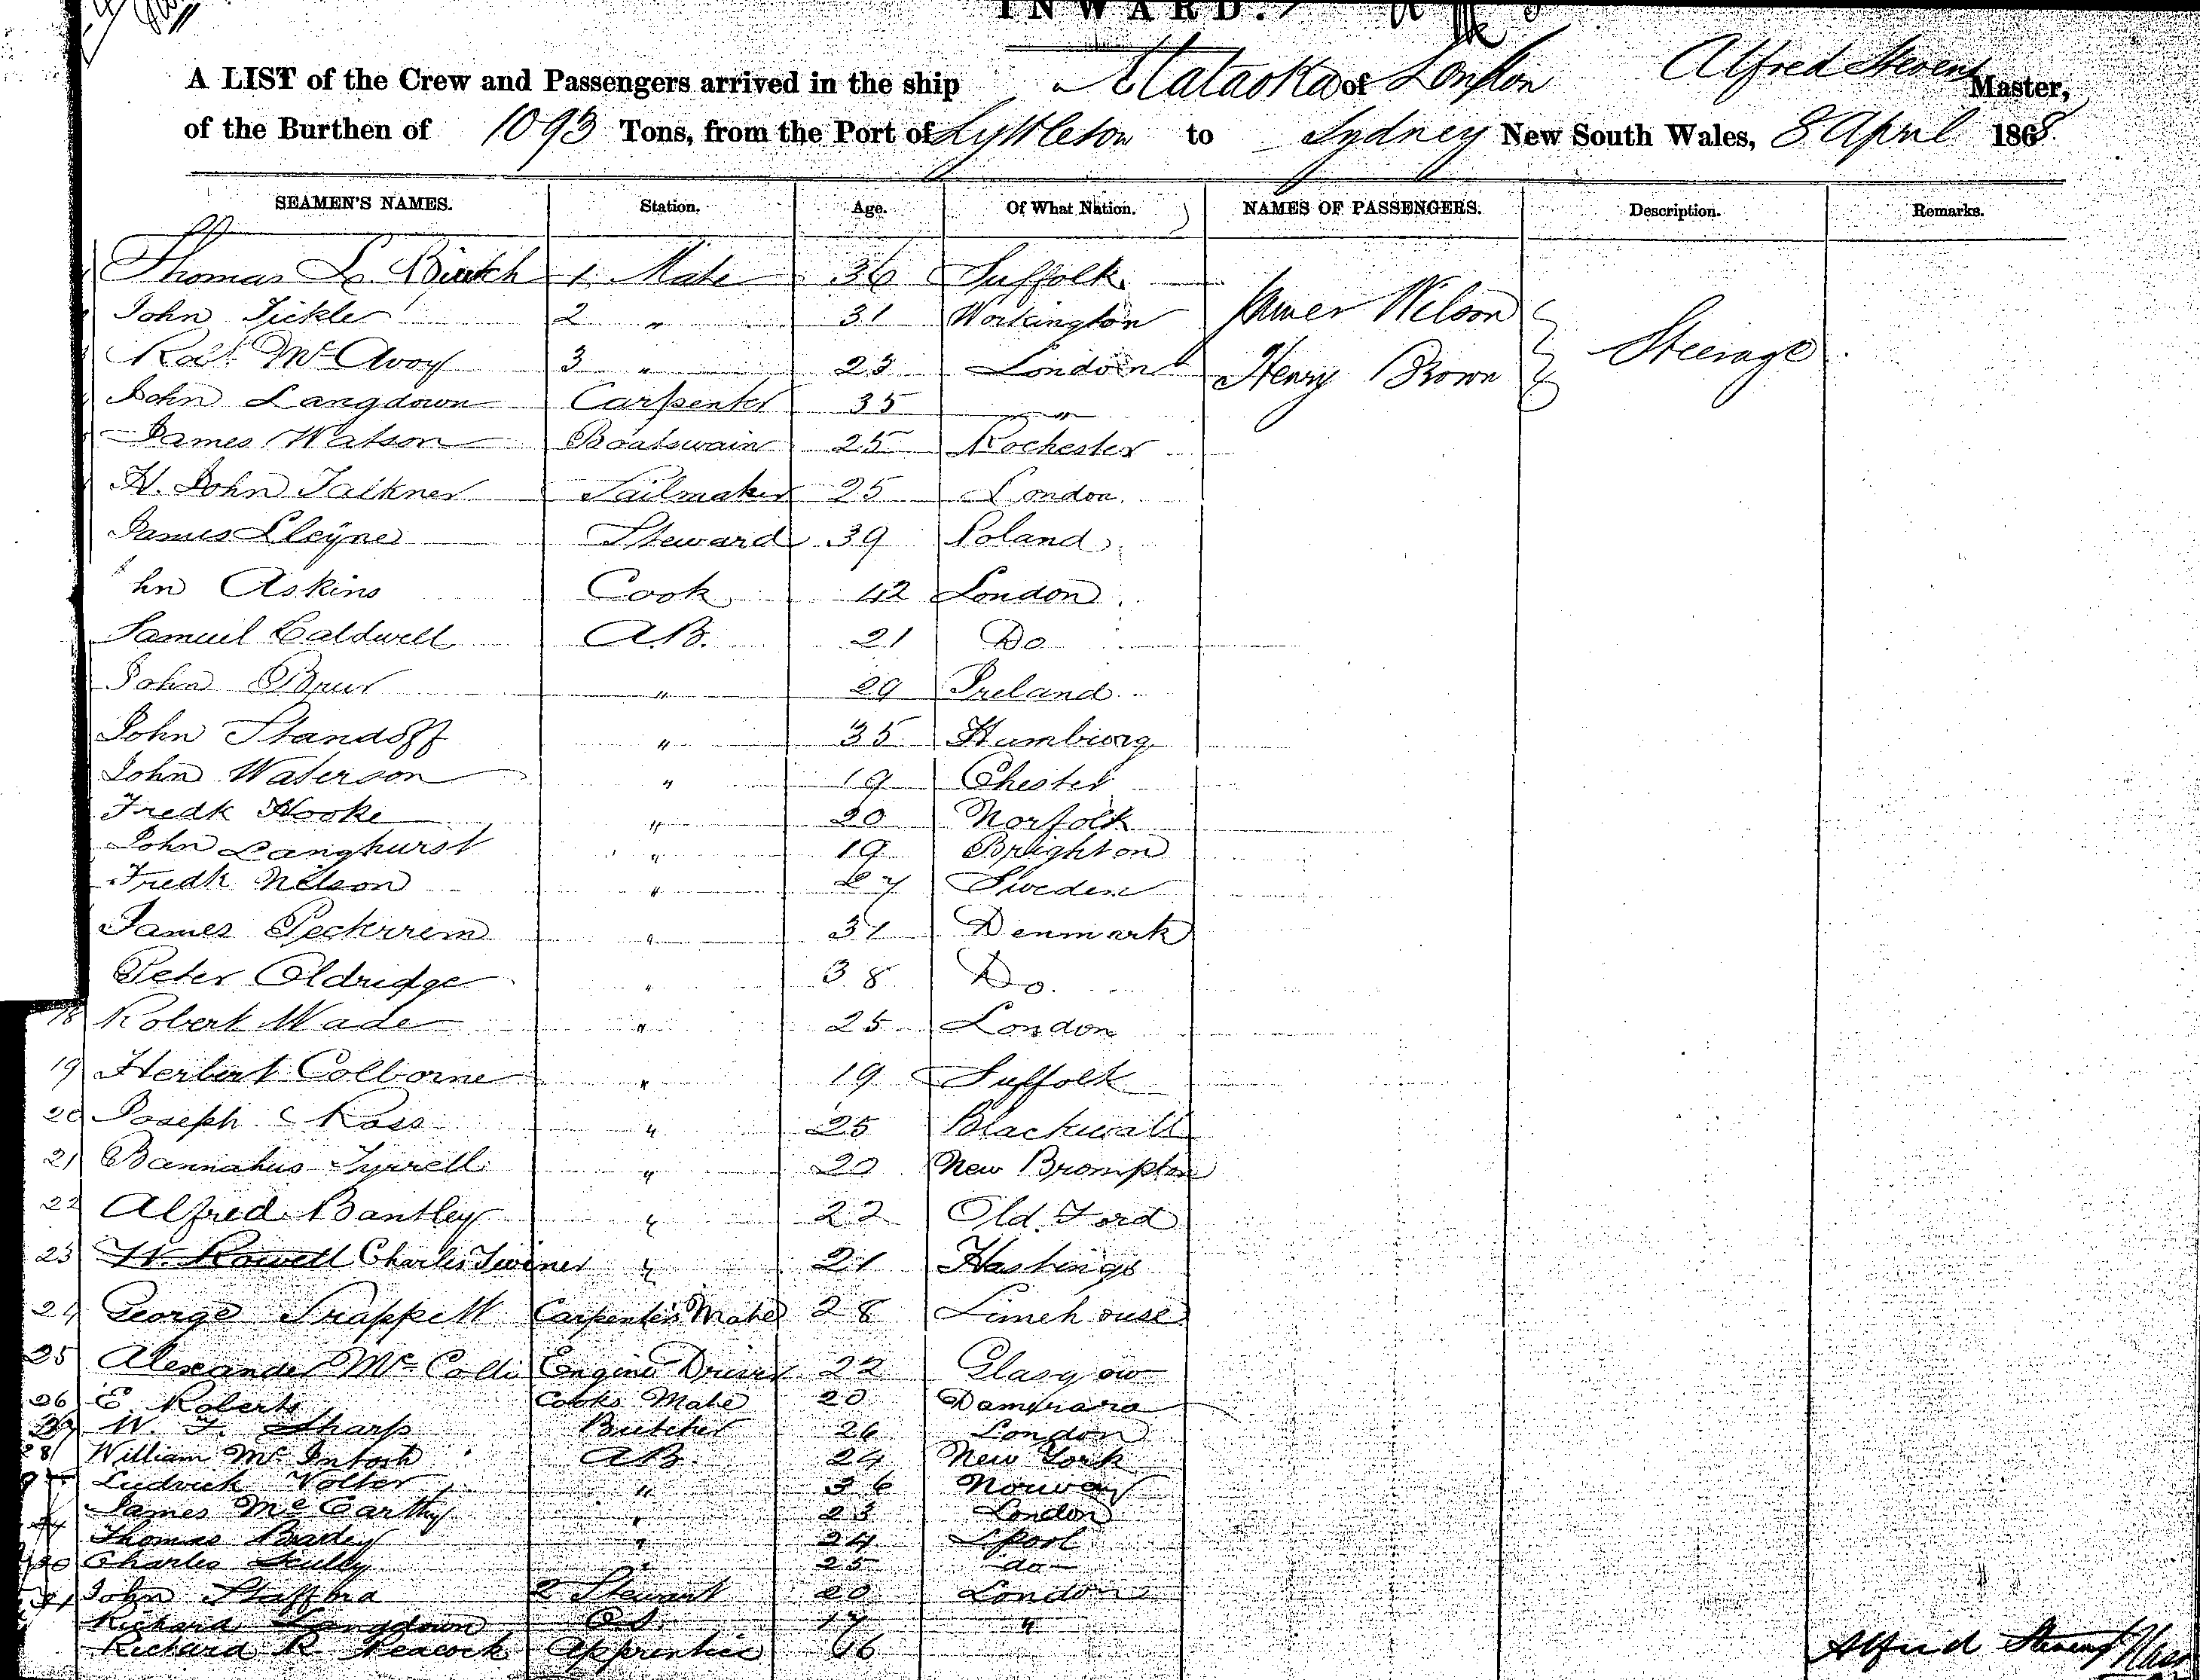 INWARD.
A LIST of the Crew and Passengers arrived in the ship Mataoka of London Alfred Stevens Master,
of the Burthen of 1093 Tons, from the Port of Lyttleton to Sydney New South Wales, 8 April 1868
SEAMEN'S NAMES. Station. Age. Of What Nation. NAMES OF PASSENGERS. Description. Remarks.
Thomas L. 1 Mate 36 Suffolk
John Tickle 2 " 31 Workington James Wilson
Robt. McAvoy 3 " 23 London Henry Brown Steerage
John Langdown Carpenter 35 "
James Watson Boatswain 25 Rochester
H. John Falkner Sailmaker 25 London
James Steward 39 Poland
hn Askins Cook 42 London
Samuel Caldwell A.B. 21 Do
John " 29 Ireland
John Standoff " 35 Hamburg
John Waterson " 19 Chester
Fredk Hooke " 20 Norfolk
John Langhurst " 19 Brighton
Fredk Nelson " 27 Sweden
James " 31 Denmark
Peter Oldridge " 38 Do.
18 Robert Wade " 25 London
19 Herbert Colborne " 19 Suffolk
20 Joseph Ross " 25 Blackwall
21 Tyrrell " 20 New Brompton
22 Alfred Bantley " 22 Old Ford
23 W. Rowell Charles Twiner " 21 Hastings
24 George Trappett Carpenter's Mate 28 Limehouse
25 Alexander Engine Driver 22 Glasgow
26 E. Roberts Cooks Mate 20 Damerara
27 W. F. Sharp Butcher 26 London
28 William McIntosh A.B. 24 New York
Ludvick Volter " 36 Norway
James McCarthy " 23 London
Thomas " 24 Lpool
30 Charles Scully " 25 do
31 John Stafford 2 Stewart 20 London
Richard Langdown O.S. 17 "
Richard R. Peacock Apprentice 16
Alfred Stevens